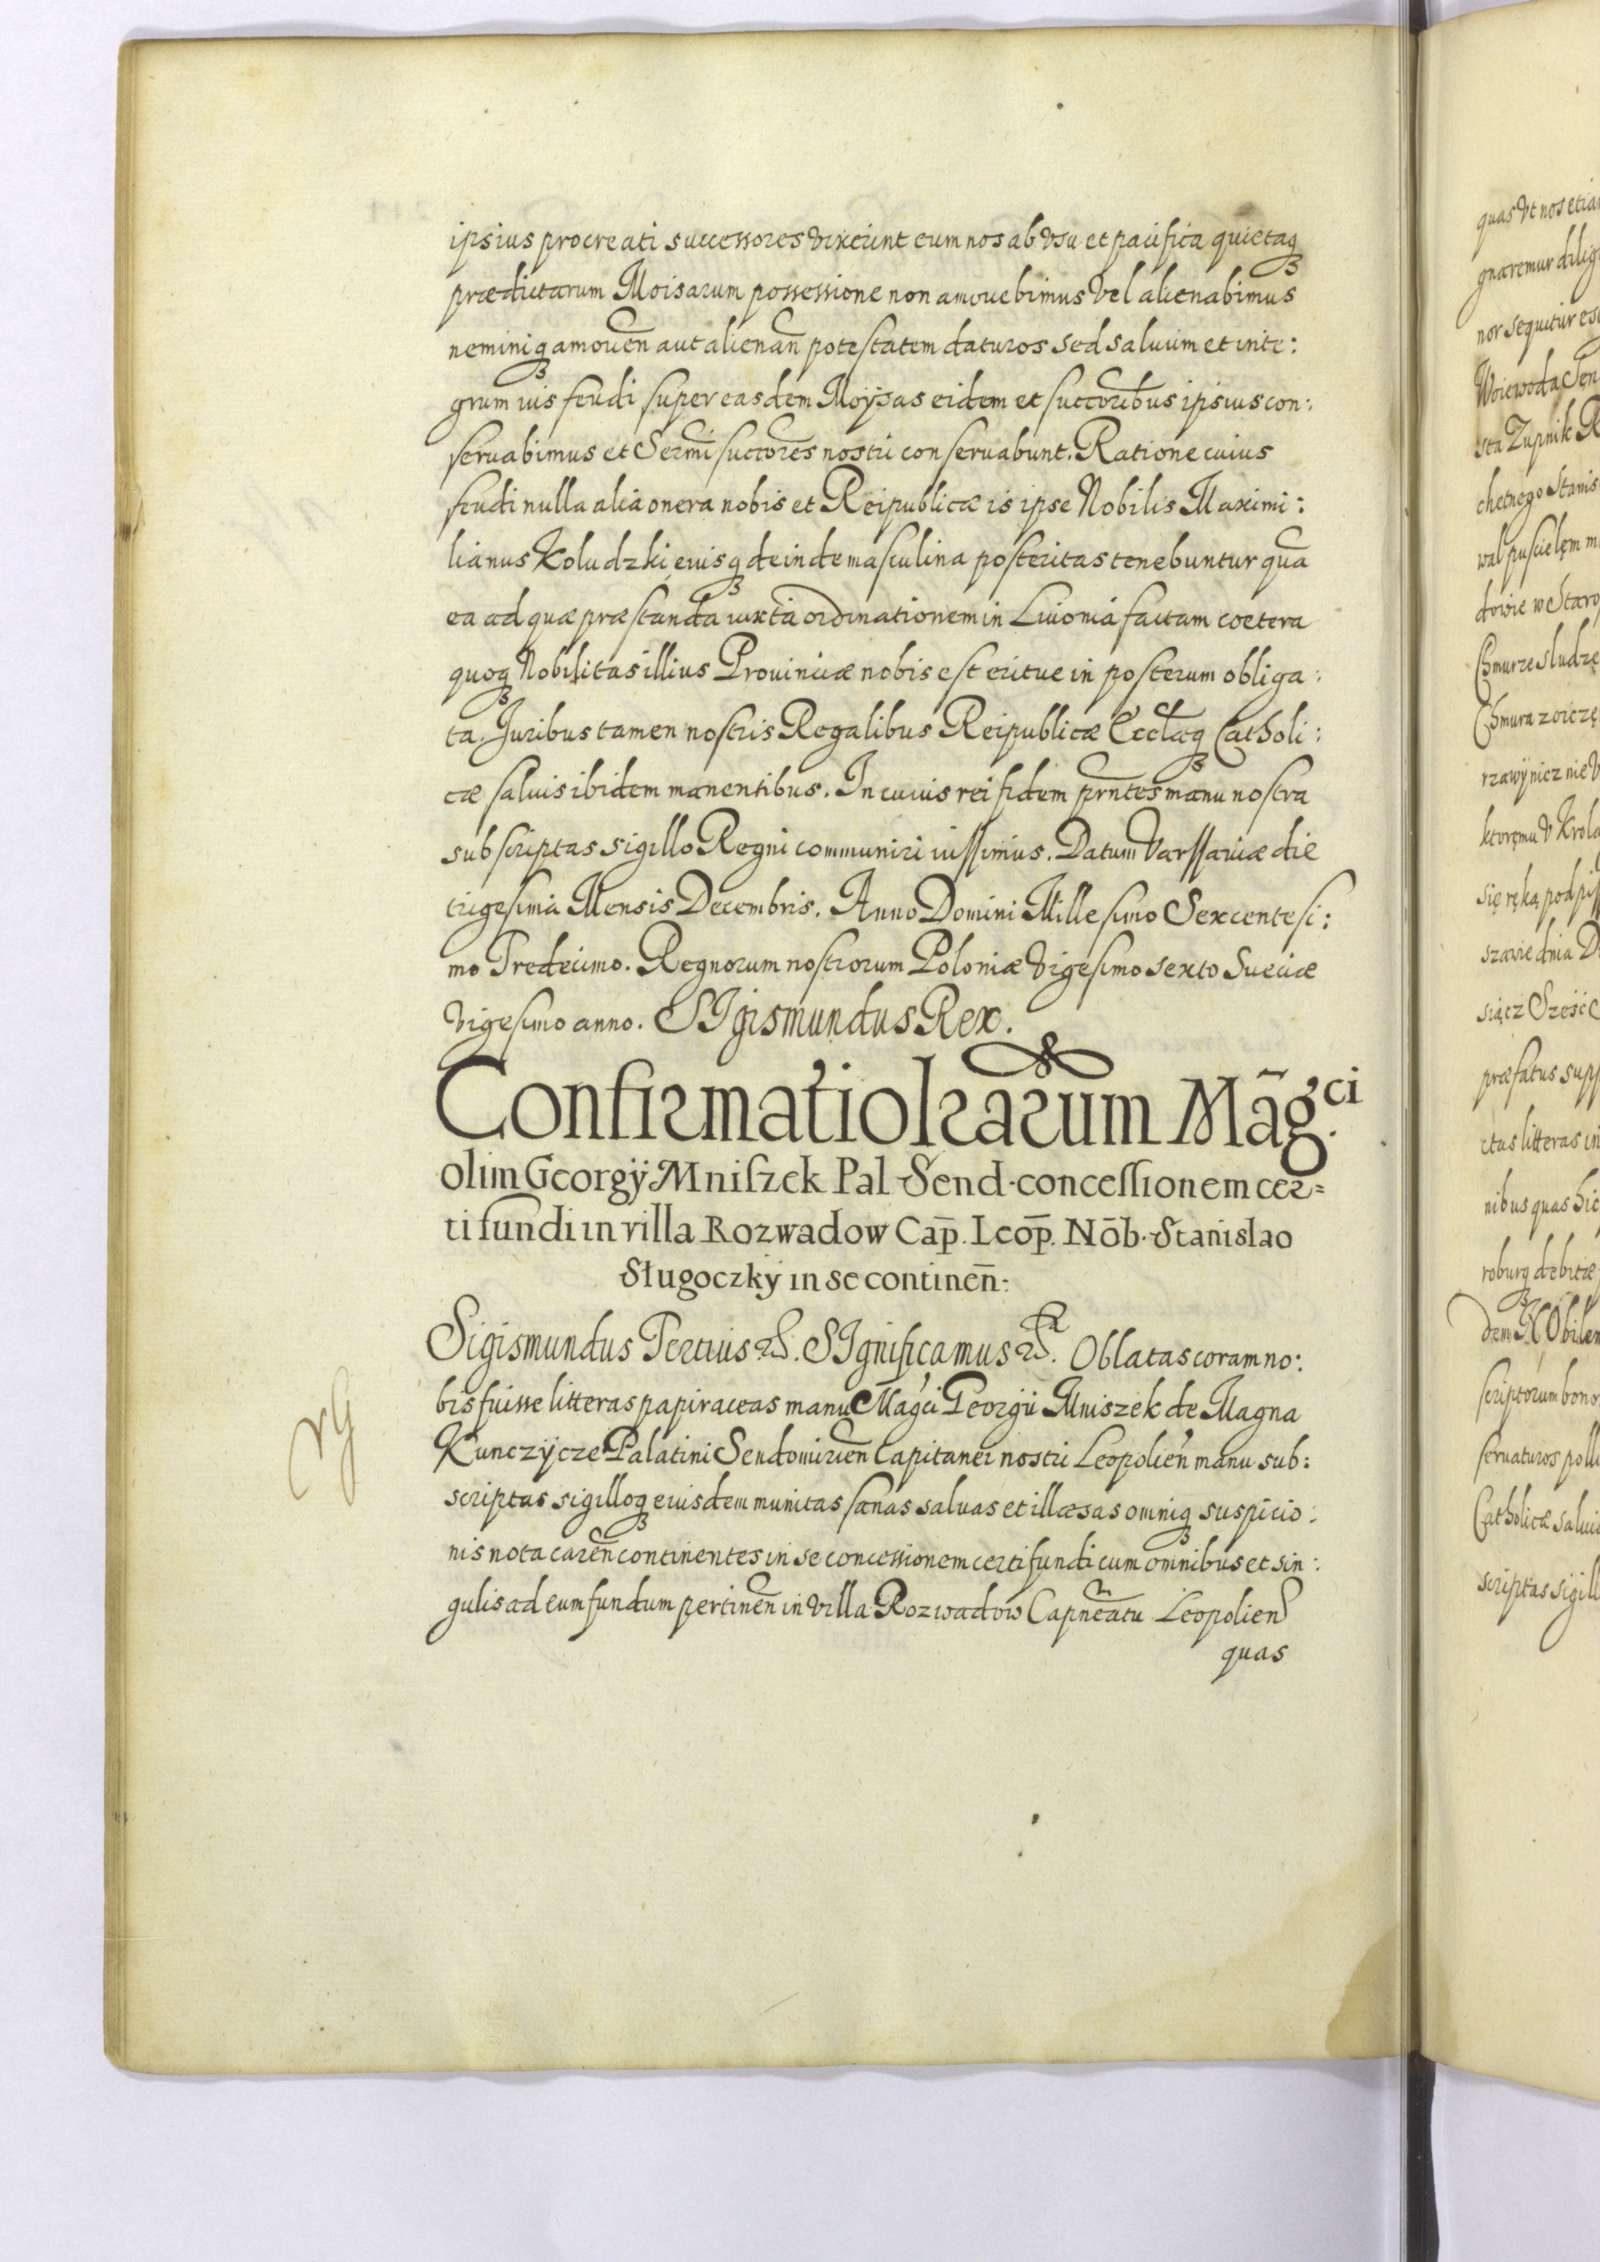 ipsius procreati successores vixerint eum nos ab vsu et pacifica quietaq̨
prædictarum Moisarum possessione non amouebimus vel alienabimus
neminiq̨ amouen̄ aut alienan̄ potestatem daturos sed saluum et inte:
grum ius feudi super easdem Moÿsas eidem et succoribus ipsius con:
seruabimus et Sermi succores nostri conseruabunt. Ratione cuius
feudi nulla alia onera nobis et Reipublicæ is ipse Nobilis Maximi:
lianus Koludzki, eiusq̨ deinde masculina posteritas tenebuntur qua
ea ad quæ præstanda iuxta ordinationem in Liuonia factam coetera
quoq̨ Nobilitas illius Prouinciæ nobis est eritue in posterum obliga:
ta. Juribus tamen nostris Regalibus Reipublicæ Eccłæq̨ Catholi:
cæ saluis ibidem manentibus. In cuius rei fidem prntes manu nostra
subscriptas sigillo Regni communiri iussimus. Datum Varssauiæ die
trigesima Mensis Decembris. Anno Domini Millesimo Sexcentesi:
mo Tredecimo. Regnorum nostrorum Poloniæ vigesimo sexto Sueciæ
vigesimo anno. SIgismundus Rex.
Confirmatio lrarum Māg.ci
olim Georgÿ Mniszek Pal Send. concessionem cer=
ti fundi in villa Rozwadow Cap̄. Leop̄. Nōb. Stanislao
Sługoczkÿ in se continen̄:
Sigismundus Tertius &. SIgnificamus &. Oblatas coram no:
bis fuisse litteras papiraceas manu Magci Georgii Mniszek de Magna
Kunczÿcze Palatini Sendomirien̄ Capitanei nostri Leopolien̄ manu sub:
scriptas sigilloq̨ eiusdem munitas sanas saluas et illæsas omniq̨ suspicio:
nis nota caren̄ continentes in se concessionem certi fundi cum omnibus et sin:
gulis ad eum fundum pertinen̄ in villa Rozwadow Capneatu Leopolien̄
quas
quas vt nos etia
gnaremur dilig
nor sequitur es
Woiewoda Sen
sta Zupnik R
chetnego Stanis
wal puscielęm m
dowie w Staro
Chmurze sludze
Chmura zoiczę
rzawÿnicz nie v
ktoręmu v Krola
się ręką podpis
szawie dnia D
siącz Sześć
præfatus supp
ctas litteras in
nibus quas hic
roburq̨ debitæ
dem NObilem
scriptorum bono
seruaturos poll
Catholicæ salui
scriptas sigill